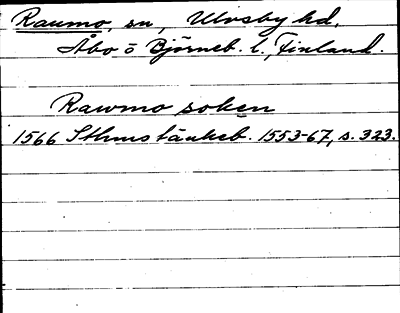 Raumo, sn, Ulvsby hd.
Åbo o Björneb. l., Finland.
Rawmo soken
1566 Sthms tänkeb. 1553-67, s. 323.